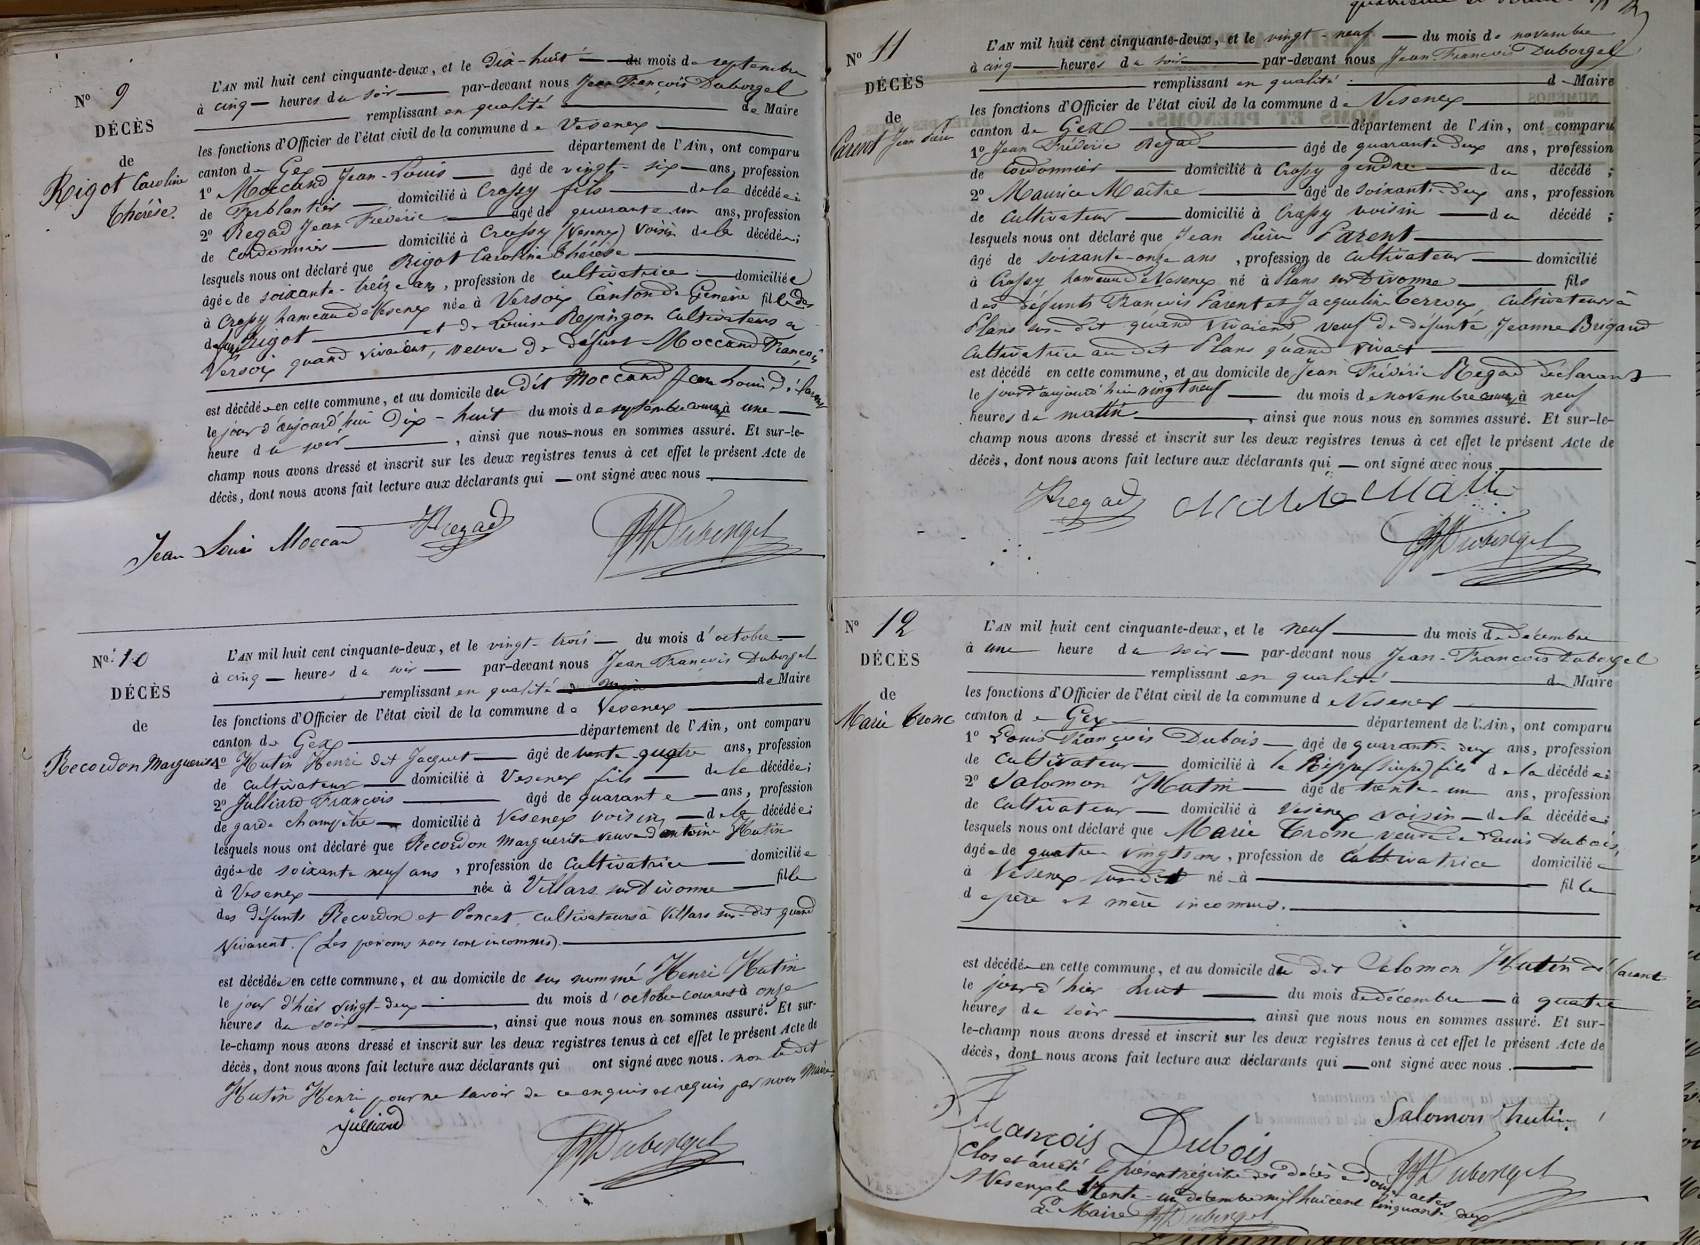 N° 9
DÉCÈS
de
Rigot Caroline
Thérèse.
L'AN mil huit cent cinquante-deux, et le dix-huit du mois de septembre
à cinq heures du soir par-devant nous Jean François Duborgel
remplissant en qualité de Maire
les fonctions d'Officier de l'état civil de la commune de Vesenex
canton de Gex département de l'Ain, ont comparu
1° Moccand Jean-Louis âgé de vingt-six ans, profession
de Ferblantier domicilié à Crassy fils de la décédée;
2° Regad Jean Fréderic âgé de quarante un ans, profession
de Cordonnier domicilié à Crassy (Vesenex) voisin de la décédée;
lesquels nous ont déclaré que Rigot Caroline Thérèse
âgée de soixante-treize ans, profession de cultivatrice domiciliée
à Crassy hameau de Vesenex née à Versoix Canton de Genève fille des
défunts Rigot et de Louise Reppingon cultivateurs à
Versoix quand vivaient, veuve de défunt Moccand François
est décédée en cette commune, et au domicile du dit Moccand Jean Louis déclarant
le jour d'aujourd'hui Dix-huit du mois de septembre courant à une
heure du soir, ainsi que nous-nous en sommes assuré. Et sur-le-
champ nous avons dressé et inscrit sur les deux registres tenus à cet effet le présent Acte de
décès, dont nous avons fait lecture aux déclarants qui ont signé avec nous.
Jean Louis Moccand Regad Duborgel
N° 10
DÉCÈS
de
Recordon Marguerite
L'AN mil huit cent cinquante-deux, et le vingt-trois du mois d'octobre
à cinq heures du soir par-devant nous Jean François Duborgel
remplissant en qualité de Maire
les fonctions d'Officier de l'état civil de la commune de Vesenex
canton de Gex département de l'Ain, ont comparu
1° Hutin Henri dit Jaquet âgé de trente quatre ans, profession
de cultivateur domicilié à Vesenex fils de la décédée;
2° Julliard François âgé de quarante ans, profession
de garde champêtre domicilié à Vesenex voisin de la décédée;
lesquels nous ont déclaré que Recordon Marguerite veuve d'antoine Hutin
âgée de soixante neuf ans, profession de cultivatrice domiciliée
à Vesenex née à Villars sur Divonne fille
des défunts Recordon et Poncet cultivateurs à Villars sus-dit quand
vivaient. (Les prénoms nous sont inconnus).
est décédée en cette commune, et au domicile de sus nommé Henri Hutin
le jour d'hier vingt-deux du mois d'octobre courant à onze
heures du soir, ainsi que nous nous en sommes assuré. Et sur-
le-champ nous avons dressé et inscrit sur les deux registres tenus à cet effet le présent Acte de
décès, dont nous avons fait lecture aux déclarants qui ont signé avec nous. non le dit
Hutin Henri pour ne savoir de ce enquis et requis par nous Maire.
Julliard
Duborgel
N° 11
DÉCÈS
de
Parent Jean Pierre
L'AN mil huit cent cinquante-deux, et le vingt-neuf du mois de novembre
à cinq heures du soir par-devant nous Jean François Duborgel
remplissant en qualité de Maire
les fonctions d'Officier de l'état civil de la commune de Vesenex
canton de Gex département de l'Ain, ont comparu
1° Jean Fréderic Regad âgé de quarante deux ans, profession
de cordonnier domicilié à Crassy gendre du décédé;
2° Maurice Maître âgé de soixante-deux ans, profession
de cultivateur domicilié à Crassy voisin du décédé;
lesquels nous ont déclaré que Jean Pierre Parent
âgé de soixante-onze ans, profession de cultivateur domicilié
à Crassy hameau de Vesenex né à Plans sur Divonne fils
des défunts François Parent et Jacqueline Terroux cultivateurs à
Plans sus-dit quand vivaient veuf de défunte Jeanne Brigand
cultivatrice au dit Plans quand vivait
est décédé en cette commune, et au domicile de Jean Fréderic Regad déclarant
le jour d'aujourd'hui vingt neuf du mois de novembre courant à neuf
heures du matin, ainsi que nous nous en sommes assuré. Et sur-le-
champ nous avons dressé et inscrit sur les deux registres tenus à cet effet le présent Acte de
décès, dont nous avons fait lecture aux déclarants qui ont signé avec nous
Regad
Duborgel
N° 12
DÉCÈS
de
Marie Tronc
L'AN mil huit cent cinquante-deux, et le neuf du mois de décembre
à une heure du soir par-devant nous Jean-François Duborgel
remplissant en qualité de Maire
les fonctions d'Officier de l'état civil de la commune de Vesenex
canton de Gex département de l'Ain, ont comparu
1° Louis François Dubois âgé de quarante-deux ans, profession
de cultivateur domicilié à la Rippe (Suisse) fils de la décédée;
2° Salomon Hutin âgé de trente-un ans, profession
de cultivateur domicilié à Vesenex voisin de la décédée;
lesquels nous ont déclaré que Marie Tronc veuve de Louis Dubois,
âgée de quatre vingts ans, profession de cultivatrice domiciliée
à Vesenex susdit né à fille
de père et mère inconnus.
est décédée en cette commune, et au domicile du dit Salomon Hutin déclarant
le jour d'hier huit du mois de décembre à quatre
heures du soir ainsi que nous nous en sommes assuré. Et sur-
le-champ nous avons dressé et inscrit sur les deux registres tenus à cet effet le présent Acte de
décès, dont nous avons fait lecture aux déclarants qui ont signé avec nous.
François Dubois Salomon hutin
Duborgel
Clos et arrêté le présent registre des décès à douze actes
à Vesenex le trente-un décembre mil huit cent cinquante deux
Le Maire Duborgel